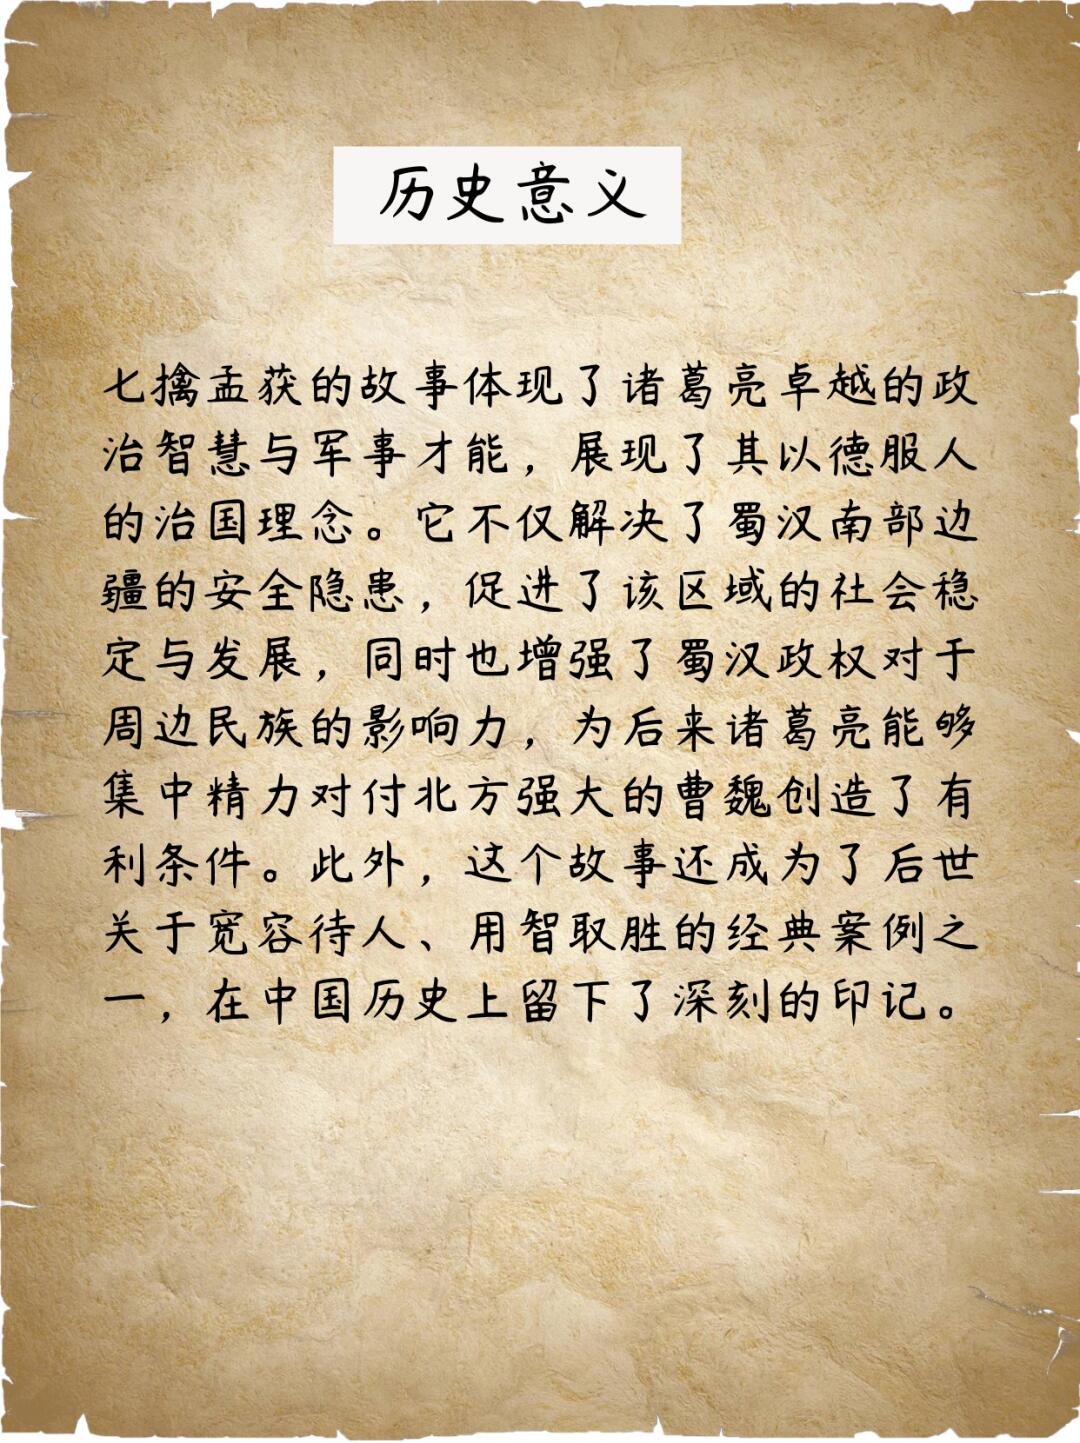 历史意义
七擒孟获的故事体现了诸葛亮卓越的政
治智慧与军事才能，展现了其以德服人
的治国理念。它不仅解决了蜀汉南部边
疆的安全隐患，促进了该区域的社会稳
定与发展，同时也增强了蜀汉政权对于
周边民族的影响力，为后来诸葛亮能够
集中精力对付北方强大的曹魏创造了有
利条件。此外，这个故事还成为了后世
关于宽容待人、用智取胜的经典案例之
一，在中国历史上留下了深刻的印记。